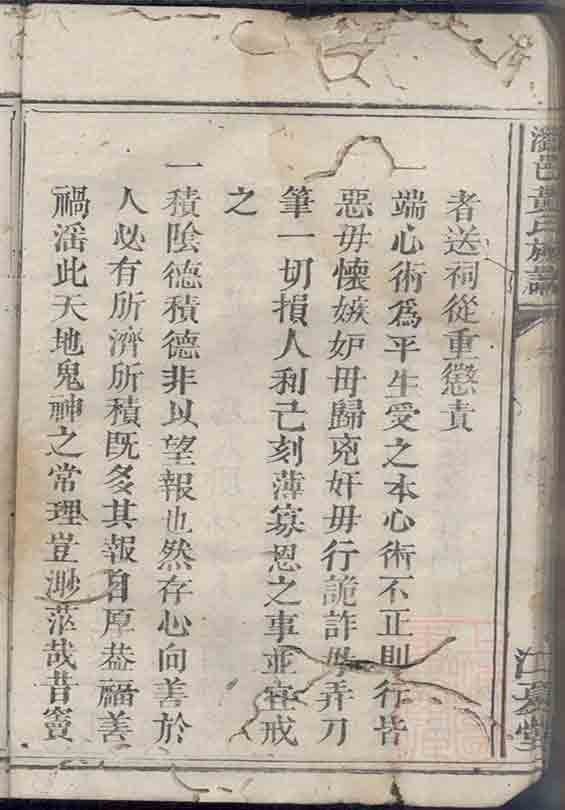 邑黃氏族譜
江夏堂
者送祠從重懲責
端心術爲平生受之本心術不正則行皆
惡毋懷嫉妒毋歸兇奸毋行詭詐毋弄刀
筆一切損人利己刻薄寡恩之事並宜戒
之
一積陰德積德非以望報也然存心向善於
人必有所濟所積既多其報自厚葢福善
禍滛此天地鬼神之常理豈渺茫哉昔竇